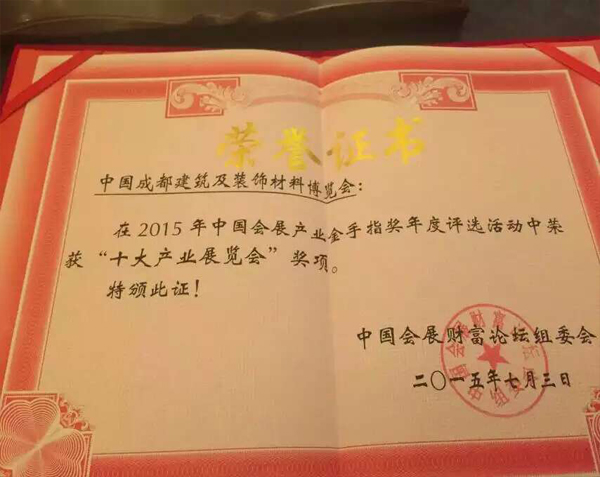 荣誉证书
中国成都建筑及装饰材料博览会：
在2015年中国会展产业金手指奖年度评选活动中荣
获“十大产业展览会”奖项。
特颁此证！
中国会展财富论坛组委会
二〇一五年七月三日